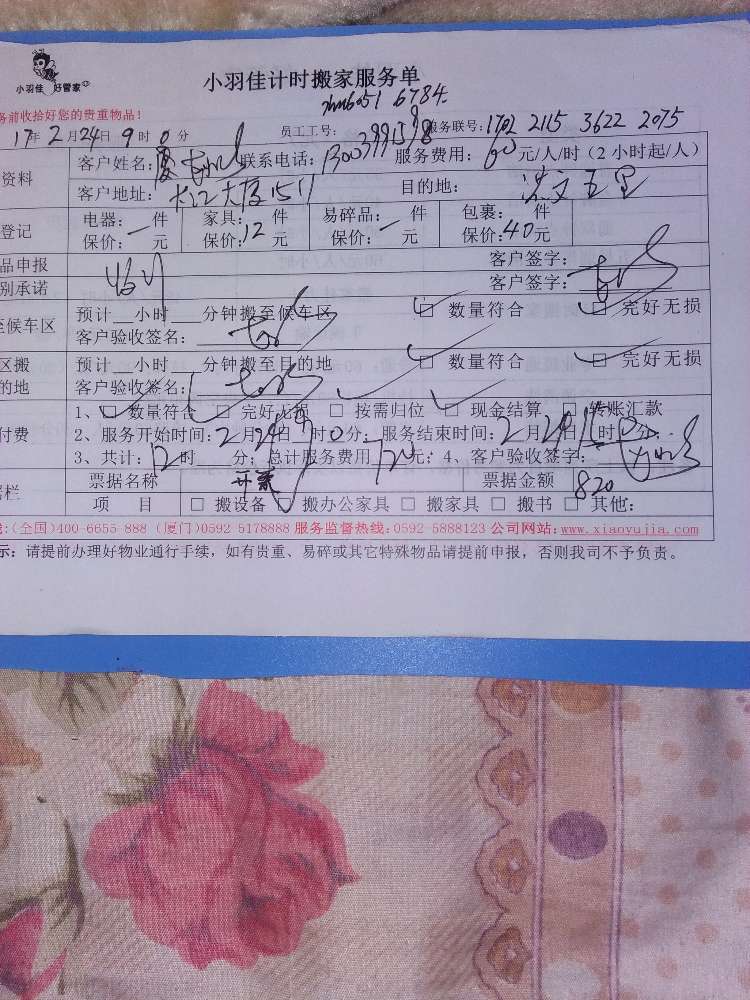 小羽佳 好管家
小羽佳计时搬家服务单
务前收拾好您的贵重物品!
6784
17年2月24日9时0分 员工工号: 服务联号:1702 2115 3622 2075
资料 客户姓名: 联系电话: 服务费用:60元/人/时(2小时起/人)
客户地址: 长江大厦1511 目的地:
登记 电器: 件 家具: 件 易碎品: 件 包裹: 件
保价:一元 保价:12元 保价:一元 保价:40元
品申报 客户签字:
别承诺 客户签字:
至候车区 预计__小时__分钟搬至候车区 ☑ 数量符合 ☑ 完好无损
客户验收签名:
区搬 预计__小时__分钟搬至目的地 ☑ 数量符合 ☑ 完好无损
的地 客户验收签名:
付费 1、☑ 数量符合 □ 完好无损 □ 按需归位 ☑ 现金结算 转账汇款
2、服务开始时间:2月24日9时0分; 服务结束时间:2月24日 时 分;
3、共计:12时 分; 总计服务费用720元; 4、客户验收签字:
据栏 票据名称 开票 票据金额 820
项 目 □ 搬设备 □ 搬办公家具 □ 搬家具 □ 搬书 □ 其他:
线:(全国)400-6655-888 (厦门)0592-5178888 服务监督热线:0592-5888123 公司网站:www.xiaoyujia.com
示:请提前办理好物业通行手续,如有贵重、易碎或其它特殊物品请提前申报,否则我司不予负责。